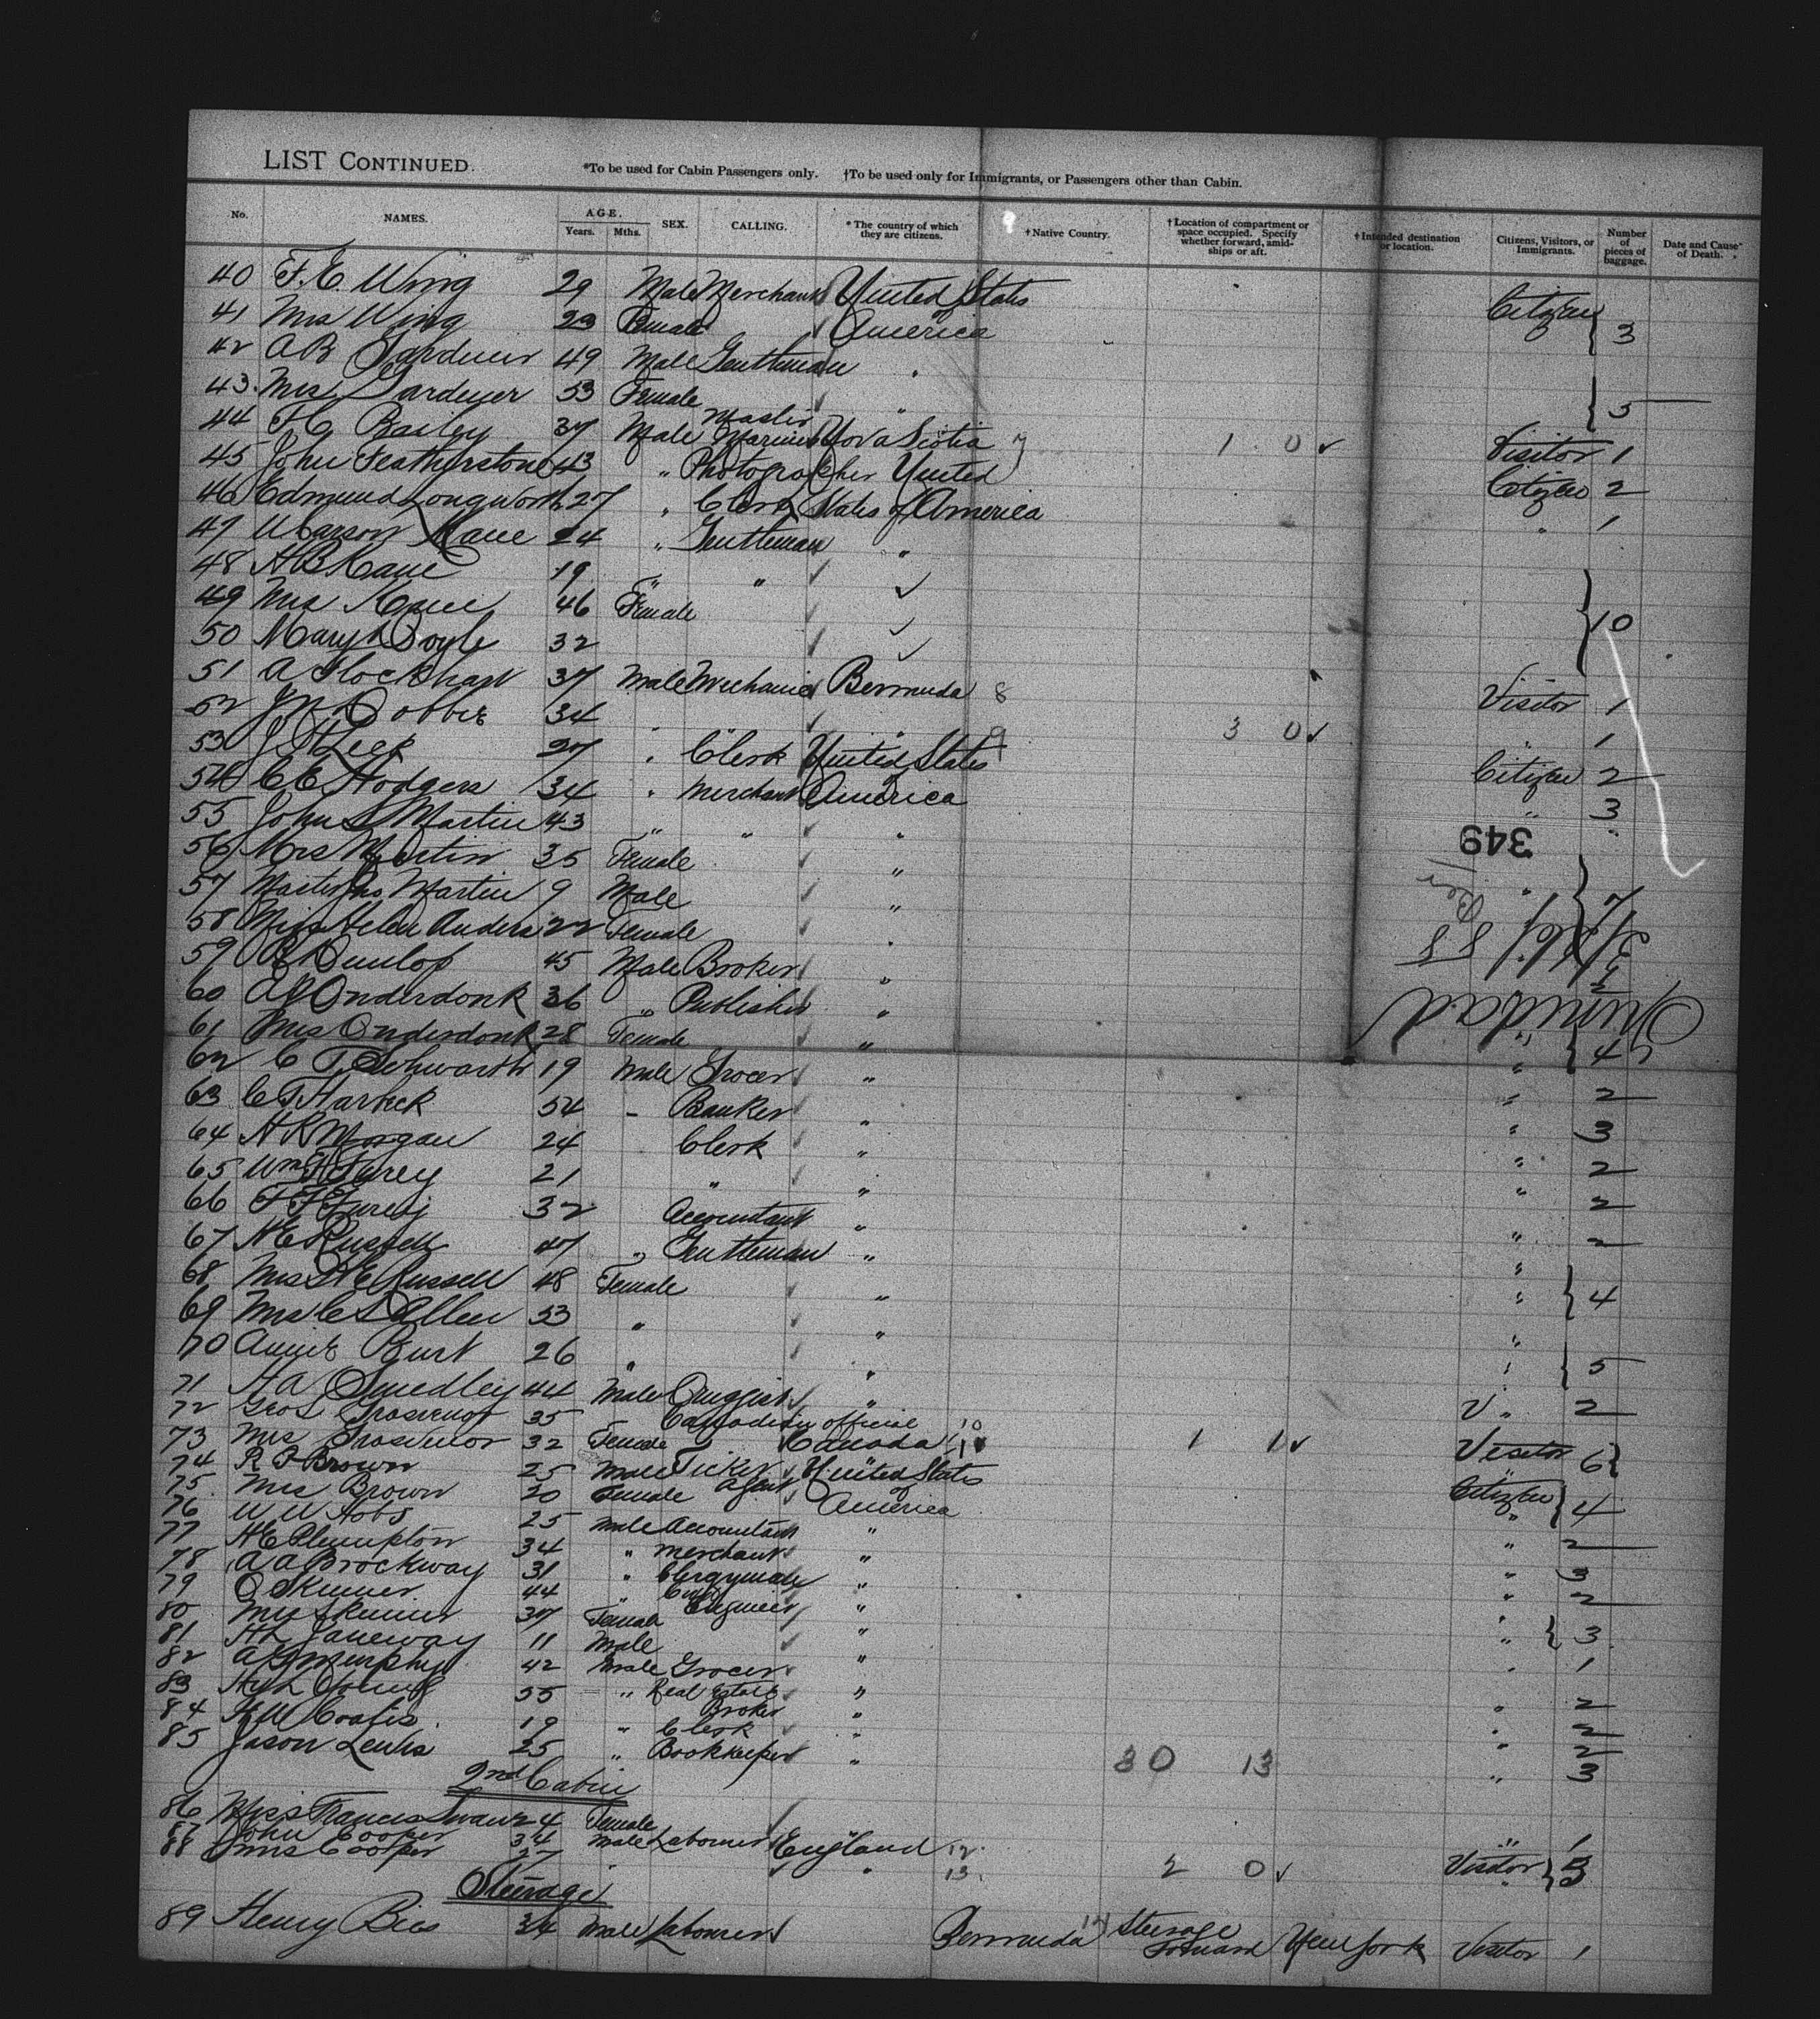 LIST CONTINUED.
*To be used for Cabin Passengers only. †To be used only for Immigrants, or Passengers other than Cabin.
No. NAMES. AGE. Years. Mths. SEX. CALLING. *The country of which they are citizens. †Native Country. †Location of compartment or space occupied. Specify whether forward, amidships or aft. †Intended destination or location. Citizens, Visitors, or Immigrants. Number of pieces of baggage. Date and Cause* of Death.
40 F. E. Wing 29 Male Merchant United States Citizen
41 Mrs Wing 23 Female of America 3
42 A B Gardner 49 Male Gentleman "
43 Mrs Gardner 53 Female " 5
44 Bailey 37 Male Master Mariner Nova Scotia 7 1 0 Visitor 1
45 John Featherstone 43 " Photographer United Citizen 2
46 Edmund Longworth 27 " Clerk States of America " 1
47 Kane 24 " Gentleman "
48 H B Kane 19 " "
49 Mrs Kane 46 Female
50 Mary Doyle 32 10
51 A Flockhart 37 Male Mechanic Bermuda 8 Visitor 1
52 Dobbie 34 " " 9 3 0 " 1
53 27 " Clerk United States Citizen 2
54 C E Hodgers 34 " Merchant of America " 3
55 John S Martin 43 " " "
349
56 Mrs Martin 35 Female "
57 Master Martin 9 Male " 7
58 Miss Helen 22 Female "
59 Dunlop 45 Male Broker "
60 Onderdonk 36 " Publisher "
Trinidad
61 Mrs Onderdonk 28 Female " " 4
62 C T Schwarth 19 Male Grocer " " 2
63 C T Harbeck 54 " Banker " " 3
64 H R Morgan 24 Clerk " " 2
65 Wm Furey 21 " " " 2
66 F F Furey 32 Accountant " " 2
67 H E Russell 47 " Gentleman " "
68 Mrs H E Russell 48 Female " " 4
69 Mrs C S Allen 53 " " "
70 Annie Burt 26 " " " 5
71 H A Smedley 44 Male Druggist " " 2
72 Geo Grosvenor 35 Canadian official 10
73 Mrs Grosvenor 32 Female Canada 11 1 1 Visitor 6
74 R F Brown 25 Male Ticket Agent United States Citizen
75 Mrs Brown 20 Female of America " 4
76 W W Hobs 25 Male Accountant " " 2
77 H E Plumpton 34 " Merchant " " 3
78 A A Brockway 31 " Clergyman " " 2
79 Skinner 44 " Civil Engineer " "
80 Mrs Skinner 37 Female " " 3
81 Janeway 11 Male " " 1
82 Murphy 42 Male Grocer " " 2
83 55 " Real Estate Broker " " 2
84 Coates 19 " Clerk " " 2
85 Jason Lewis 25 " Bookkeeper " 30 13 " 3
2nd Cabin
86 Miss Frances Swan 24 Female " 1
87 John Cooper 34 Male Labourer England 12
88 Cooper 27 " 13 2 0 Visitor 3
Steerage
89 Henry 34 Male Labourer Bermuda 14 Steerage Forward New York Visitor 1